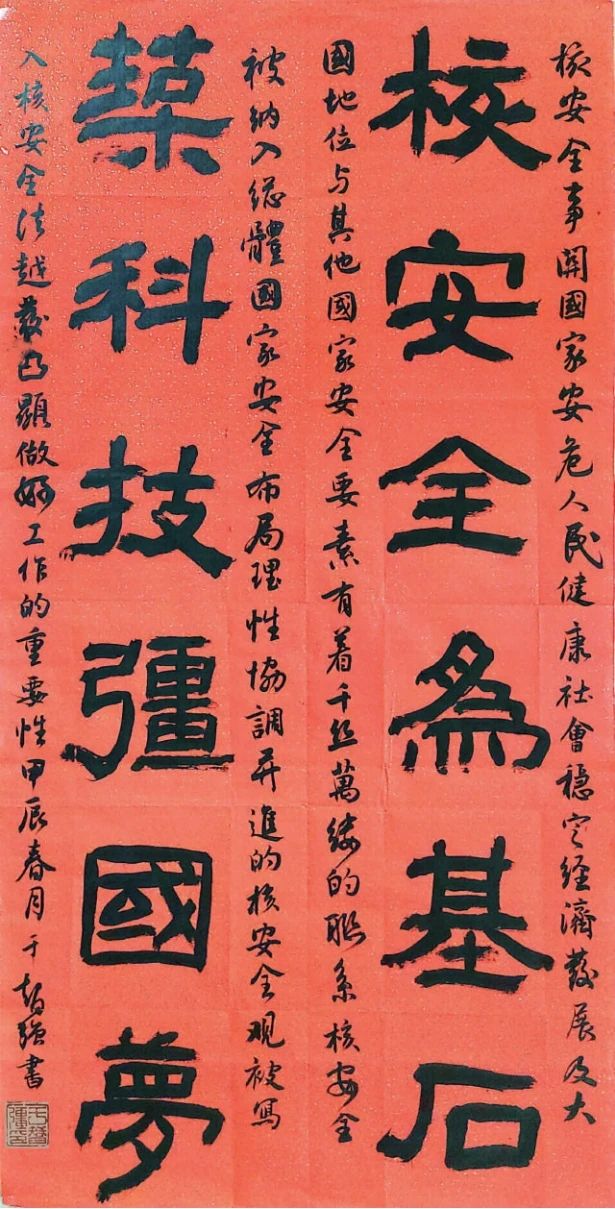 核安全事關國家安危人民健康社會穩定經濟發展及大
核安全為基石
國地位与其他國家安全要素有着千丝萬缕的聯系核安全
被纳入總體國家安全布局理性協調并進的核安全观被寫
築科技彊國夢
入核安全法越發凸顯做好工作的重要性甲辰春月于强書